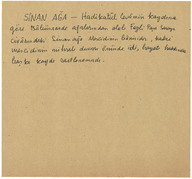 SİNAN AĞA — Hadikatül Cevâmi kaydına
göre Bölümaardı ağalarından olub Fazlı Paşa Sarayı
civârındaki Sinan Ağa Mescidinin bânisidir, kabri
mescidinin mihrab duvarı önünde idi, hayatı hakkında
başka kayda rastlanamadı.